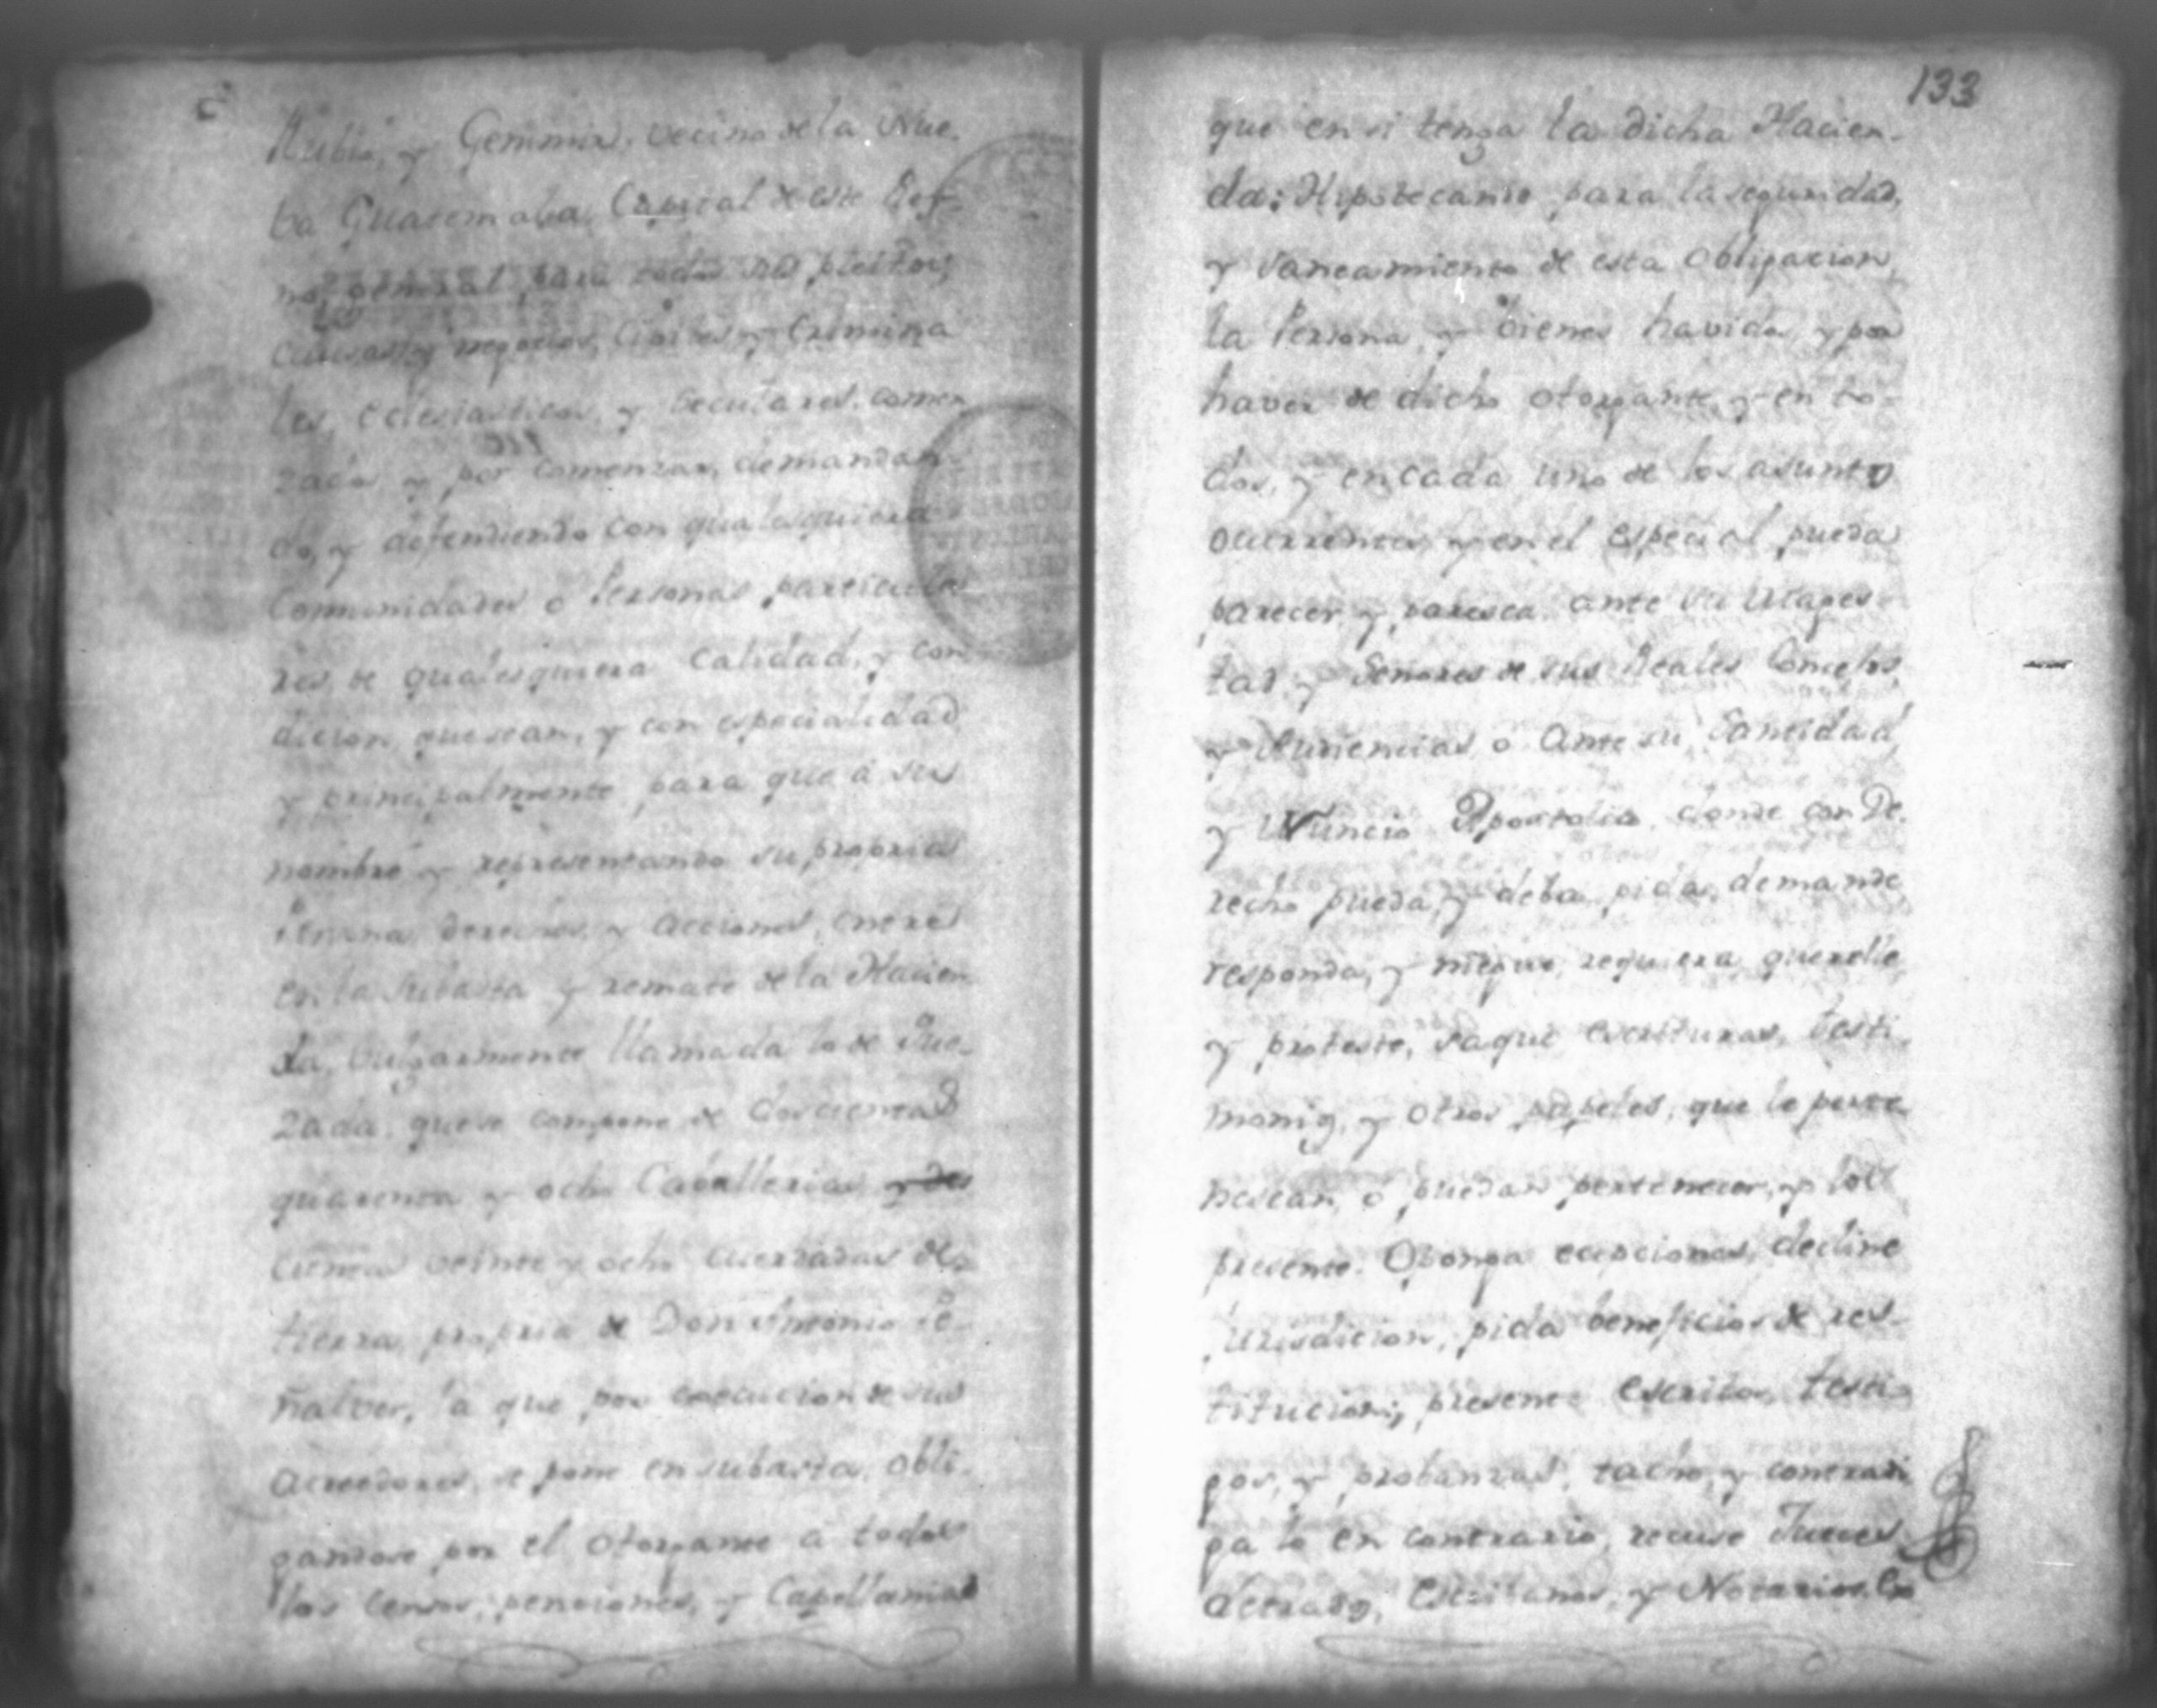 Rubio, y Gemmir, vecino de la Nue-
ba Guatemala Capital de este Rey-
no, general, para todos sus pleitos,
causas, y negocios, Civiles, y Crimina
les, eclesiasticos, y Seculares, comen
zados, y por comenzar, demandan-
do, y defendiendo con qualesquiera
Comunidades o Personas particula
res, de qualesquiera Calidad, y con
dicion que sean, y con especialidad
y principalmente para que á su
nombre y representando su propria
Persona, derechos, y acciones, entre
en la Subasta y remate de la Hacien
da, vulgarmente llamada lo de
zada, que se compone de doscientas
quarenta y ocho Caballerias y dos
cientas veinte y ocho cuerdadas de
tierra, propria de Don Antonio Pe-
ñalver, la que por execucion de sus
acreedores, se pone en subasta, obli-
gandose por el otorgante á todos
los Censos, pensiones, y Capellanias
133
que en si tenga la dicha Hacien-
da: Hipotecando para la seguridad,
y saneamiento de esta obligacion,
la Persona, y bienes havidos, y por
haver de dicho otorgante, y en to-
dos, y en cada uno de los asuntos
ocurrentes, y en el especial pueda
parecer, y paresca ante su Mages-
tad, y Señores de sus Reales Consejos,
y Audiencias, ó ante su Santidad,
y Nuncio Apostolico, donde con De-
recho pueda, y deba, pida, demande,
responda, y niegue, requiera, querelle,
y proteste, saque escrituras, testi-
monios, y otros papeles, que le perte-
nescan, ó puedan pertenecer, y los
presente. Oponga ecepciones, decline
Jurisdiccion, pida beneficios de res-
titucion, presente escritos, testi-
gos, y probanzas, tache, y contradi
ga lo en contrario, recuse Jueces,
Letrados, Escribanos, y Notarios,